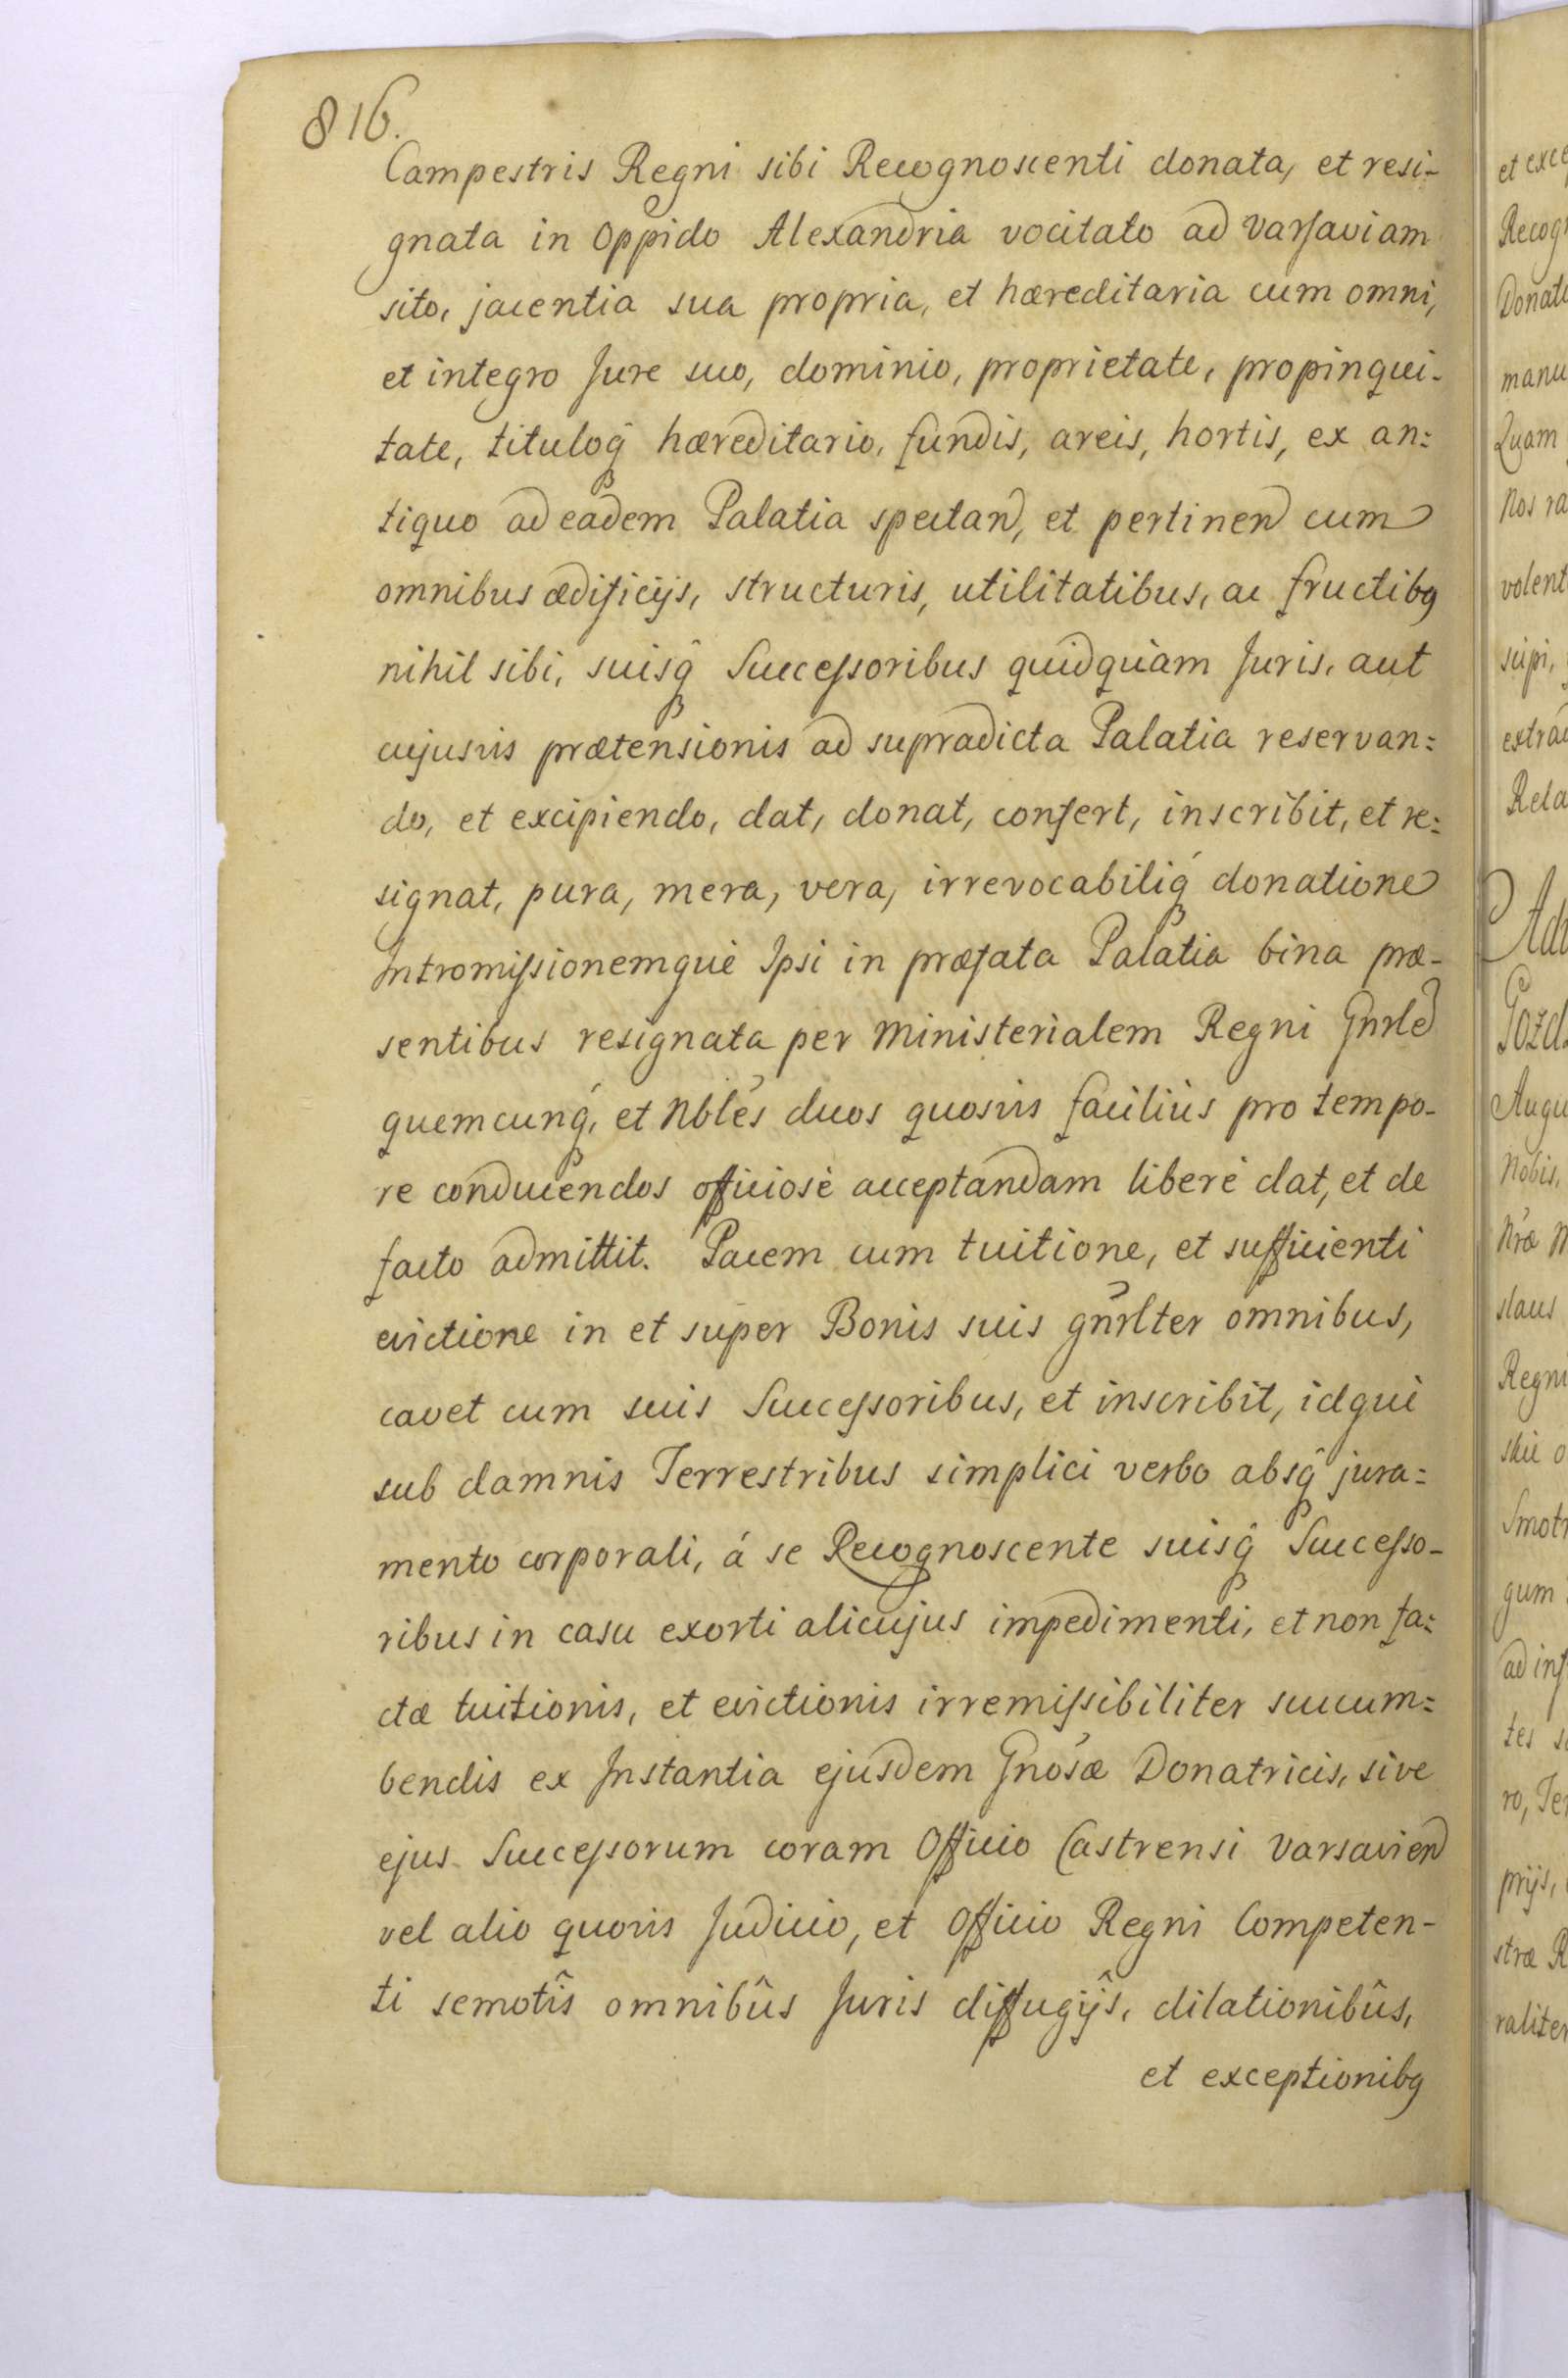 816.
Campestris Regni sibi Recognoscenti donata, et resi-
gnata in Oppido Alexandria vocitato ad Varsaviam
sito, jacentia sua propria, et hæreditaria cum omni,
et integro Jure suo, dominio, proprietate, propinqui-
tate, tituloq̂ hæreditario, fundis, areis, hortis, ex an:
tiquo ad eadem Palatia spectan, et pertinen cum
omnibus ædificijs, structuris, utilitatibus, ac fructibq
nihil sibi, suisq̂ Successoribus quidquam Juris, aut
cujusvis prætensionis ad supradicta Palatia reservan:
do, et excipiendo, dat, donat, confert, inscribit, et re:
signat, pura, mera, vera, irrevocabiliq́ donatione
Intromissionemque Ipsi in præfata Palatia bina præ-
sentibus resignata per Ministerialem Regni Gnrle
quemcunq́, et Nbles duos quosvis facilius pro tempo-
re conducendos officiosè acceptandam liberè dat, et de
facto admittit. Pacem cum tuitione, et sufficienti
evictione in et super Bonis suis gnrlter omnibus,
cavet cum suis Successoribus, et inscribit, idque
sub damnis Terrestribus simplici verbo absq̂ jura:
mento corporali, á se Recognoscente suisq̂ Successo-
ribus in casu exorti alicujus impedimenti, et non fa:
ctæ tuitionis, et evictionis irremissibiliter succum:
bendis ex Instantia ejusdem Gnosæ Donatricis, sive
ejus Successorum coram Officio Castrensi Varsavien
vel alio quovis Judicio, et Officio Regni Competen-
ti semotîs omnibûs Juris diffugijs, dilationibûs,
et exceptionibq
et exce
Recog
Donat
manu
Quam
Nos ra
volent
extra
Rela
Ad
Augu
Nobis,
Nræ
slaus
Regni
Smot
gum
ad inf
tes
ro, Te
prijs,
stræ R
raliter